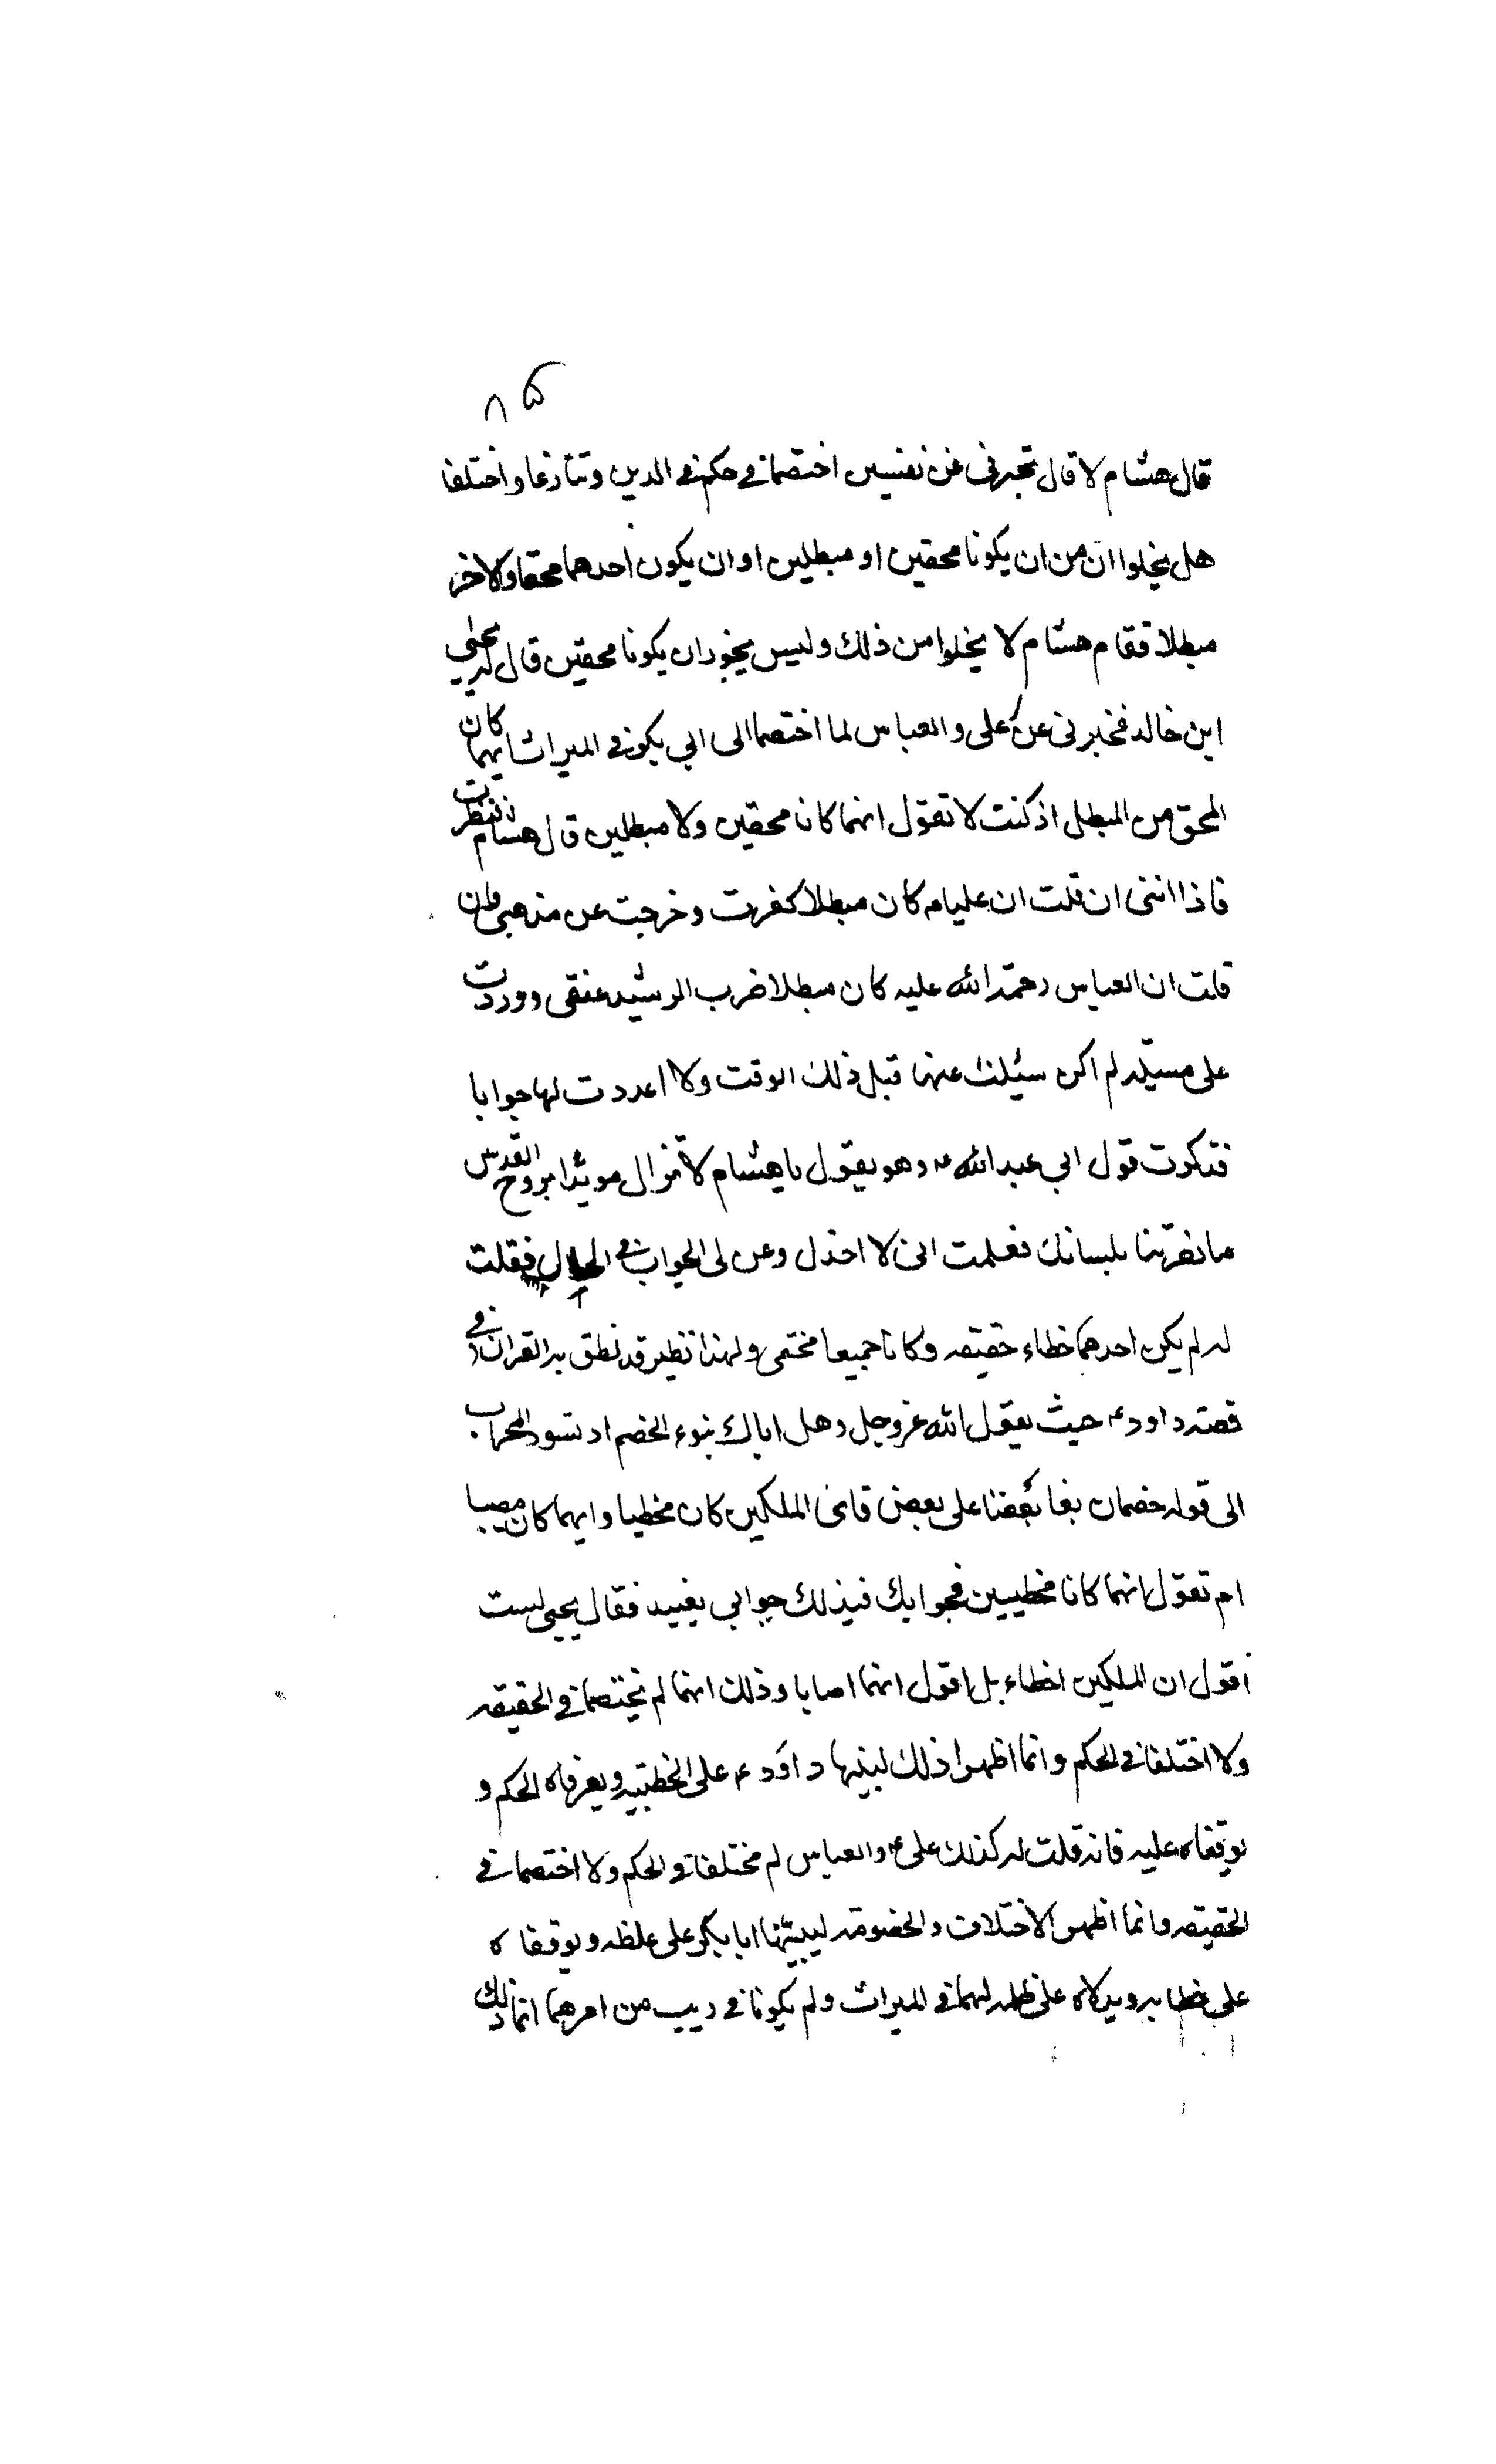 ٨٥
قال هشام لا قال تخبرنى عن نفسين اختصما فى حكم فى الدين وتنازعا واختلفا
هل يخلوا ان من ان يكونا محقين او مبطلين او ان يكون احدهما محقا والاخر
مبطلا فقام هشام لا يخلوا من ذلك وليس يجوز ان يكونا محقين قال له يحيى
ابن خالد فخبرنى عن على والعباس لما اختصما الى ابى بكر فى الميراث ايهما كان
المحق من المبطل اذ كنت لا تقول انهما كانا محقين ولا مبطلين قال هشام فنظرت
فاذا اننى ان قلت ان عليا م كان مبطلا كفرت وخرجت عن مذهبى وان
قلت ان العباس رحمة الله عليه كان مبطلا ضرب الرشيد عنقى ووردت
على مسئله لم اكن سئلت عنها قبل ذلك الوقت ولا اعددت لها جوابا
فذكرت قول ابى عبد الله ع وهو يقول يا هشام لا تزال مويدا بروح القدس
ما نصرتنا بلسانك فعلمت انى لا اخذل وعن لى الجواب فى الحال فقلت
له لم يكن احدهما خطاء حقيقه وكانا جميعا محقى ولهذا نظير قد نطق به القران فى
قصته داود ع حيث يقول الله عز وجل وهل اتاك نبوء الخصم اذ تسور المحراب
الى قوله خصمان بغا بعضنا على بعض فاى الملكين كان مخطيا وايهما كان مصيبا
ام تقول انهما كانا مخطيين فجوابك فى ذلك جوابى بعينه فقال يحيى لست
اقول ان الملكين اخطاء بل اقول انهما اصابا وذلك انهما لم يختصما فى الحقيقه
ولا اختلفا فى الحكم وانما اظهرا ذلك لينبها داود ع على الخطيئه ويعرفاه الحكم و
يوقفاه عليه فانه قلت له كذلك على ع والعباس لم يختلفا فى الحكم ولا اختصما فى
الحقيقه وانما اظهرا الاختلاف والخصومه لينبها ابا بكر على غلطه ويوقفاه
على خطايه ويدلاه على ظلمه لهما فى الميراث ولم يكونا فى ريب من امرهما انما ذلك